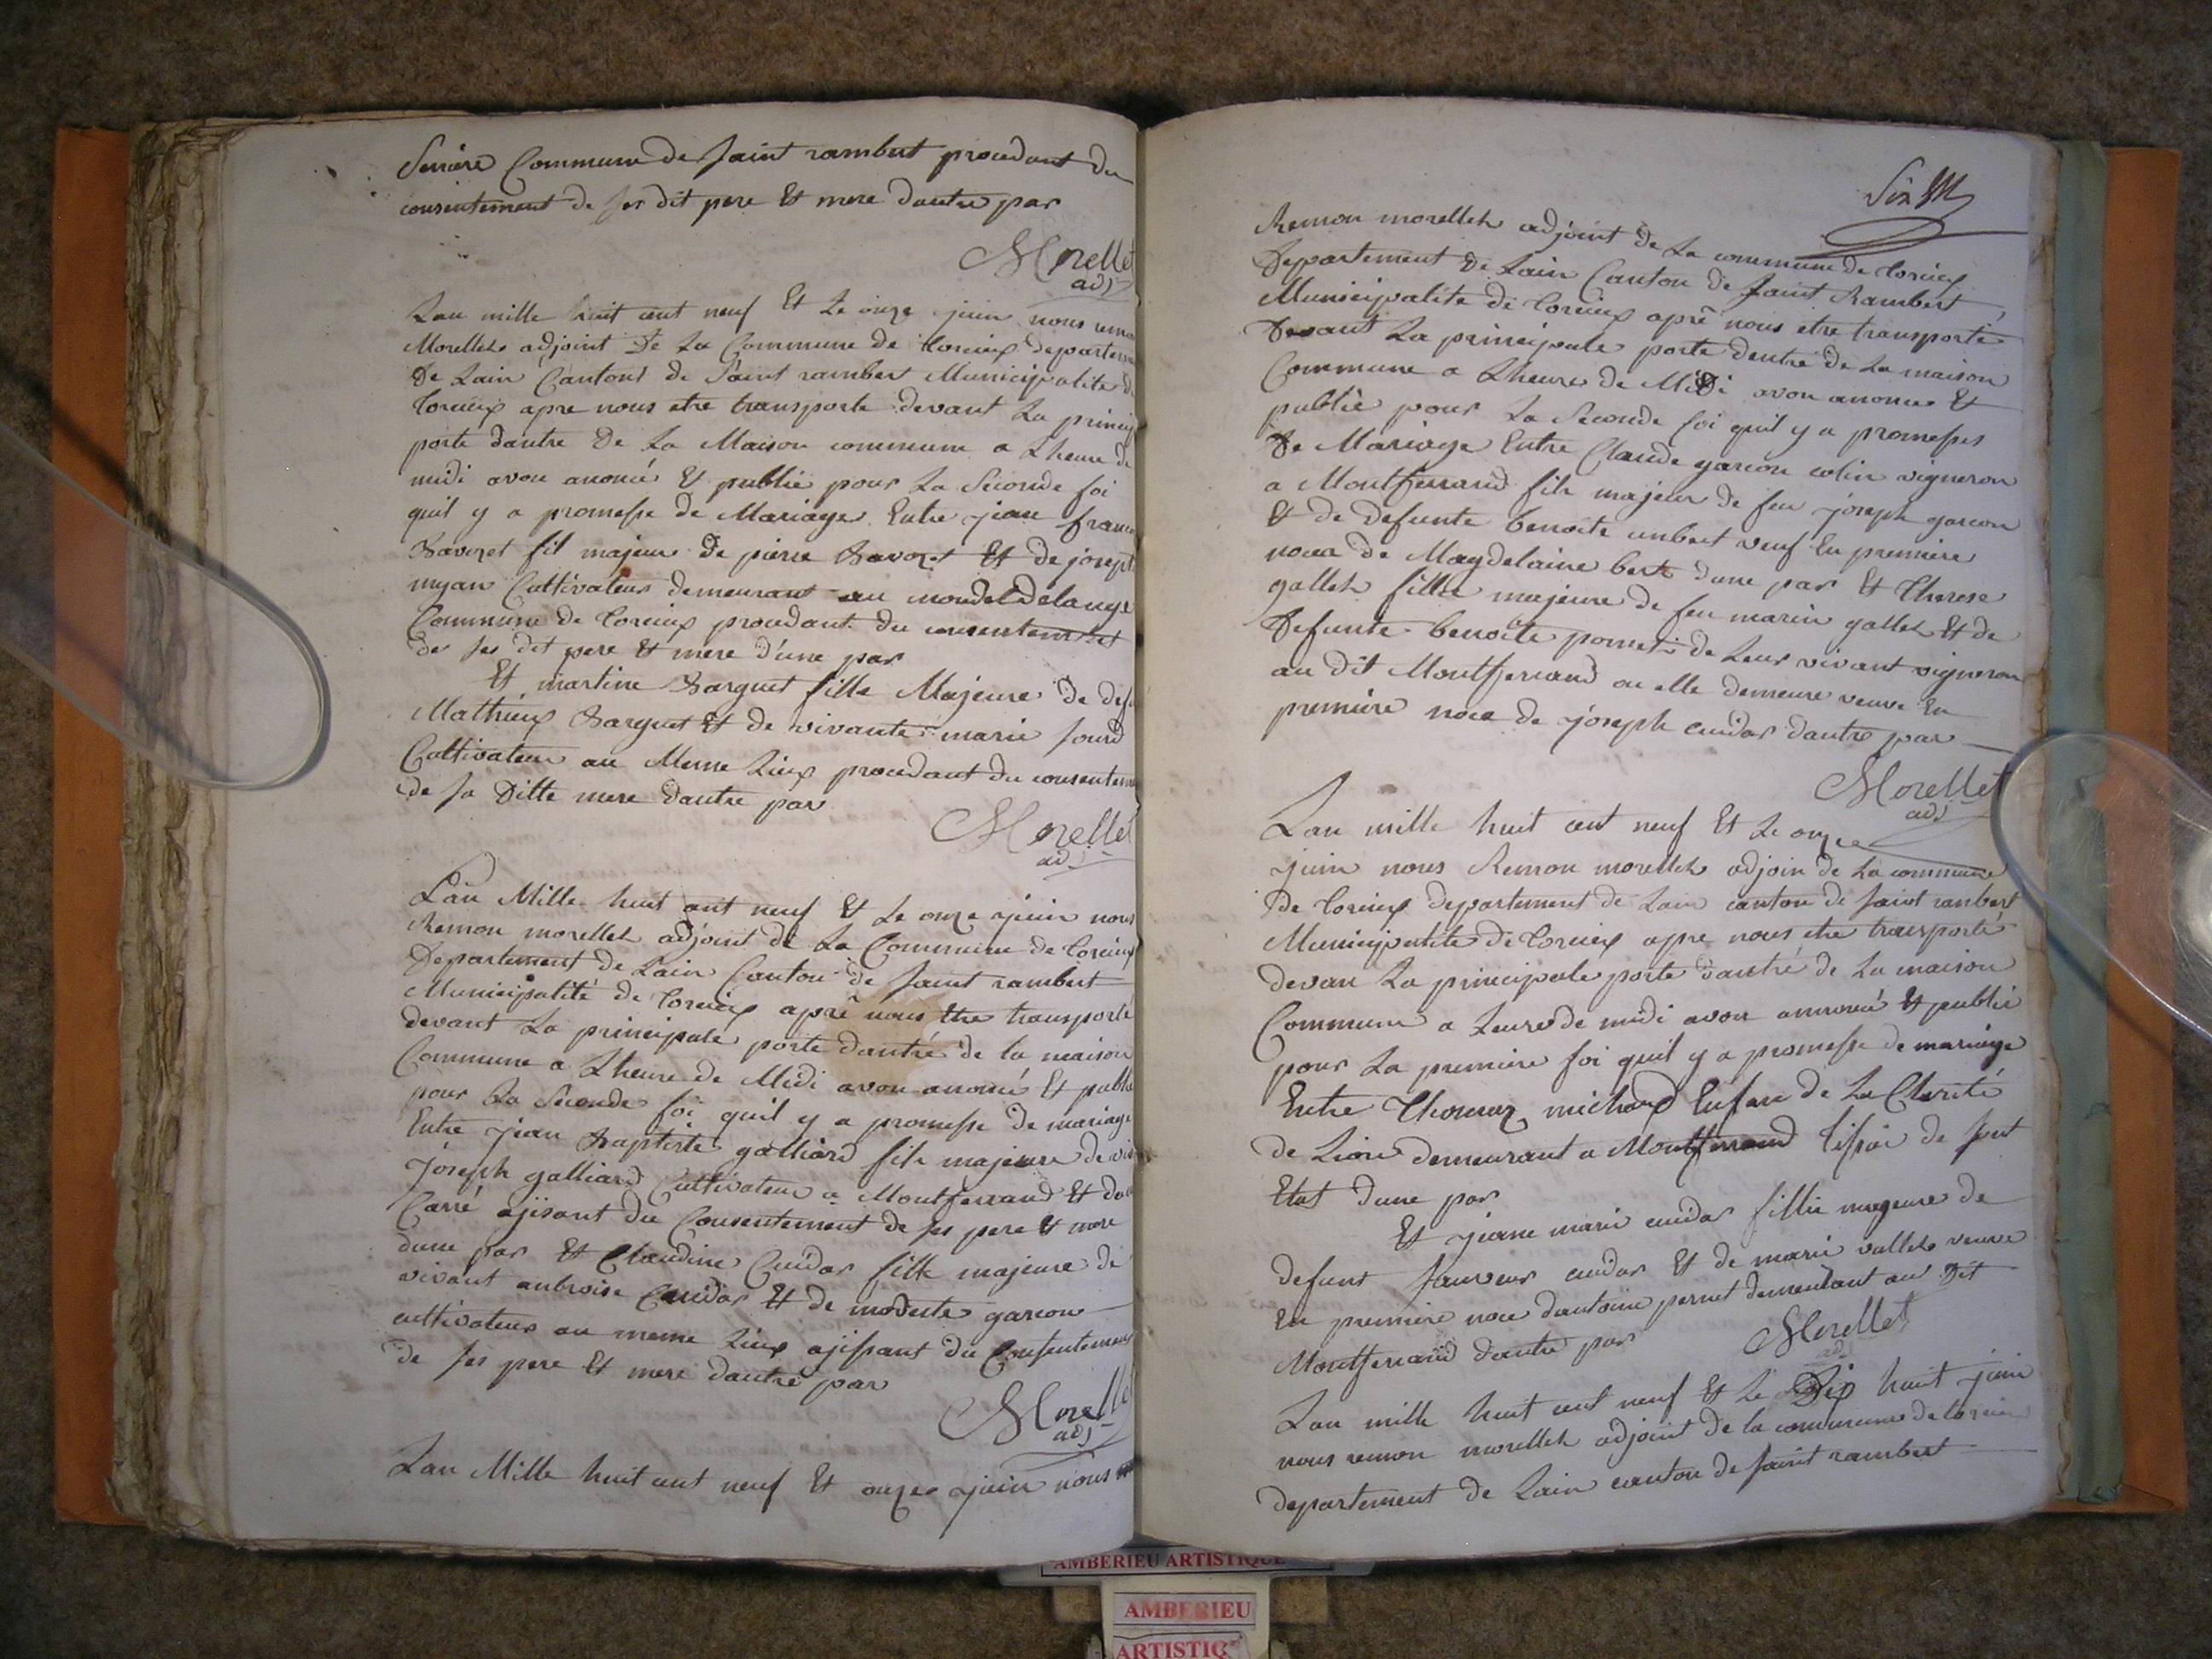 Serriere Commune de Saint rambert procedant du
consentement de ses dit pere et mere dautre par
Morellet
adj
Lan mille huit cent neuf Et Le onze juin nous remon
Morellet adjoint De La Commune de torcieux departem
De Lain Canton de Saint rambert Municipalite de
torcieux apre nous etre transporte devant La princip
porte dantre De La Maison commune a Lheure de
midi avon anoncé Et publie pour La Seconde foi
quil y a promesse de Mariage Entre jean franc
Savozet fil majeur de pierre Savozet Et de joseph
myan Cultivateur demeurant au
Commune de torcieux procedant du consentement
de ses dit pere Et mere d'une par
Et martine Barguet fille Majeure de def
Mathieux Barguet Et de vivante marie Jourd
Cultivateur au Meme Lieux procedant du consentem
de sa Ditte mere dautre par
Morellet
adj
Lan Mille huit cent neuf Et Le onze juin nous
Remon morellet adjoint de La Commune de torcieux
Departement de Lain Canton de Saint rambert
Municipalité de torcieux apré nous etre transporte
devant La principale porte dantré de la maison
Commune a Lheure de Midi avon anoncé Et publie
pour La Seconde foi quil y a promesse de mariage
Entre jean Baptiste galliard fils majeure de viv
joseph galliard Cultivateur a Montferrand Et de
Carré ajisant du Consentement de ses pere Et mere
dune par Et Claudine Cuidar fille majeure de
vivant anbroise Cuidar Et de modeste garcon
cultivateur au meme Lieux ajissant du Consentement
de ses pere Et mere dautre par
Morellet
adj
Lan Mille huit cent neuf Et onze juin nous
Six
Remon morellet adjoint de La commune de torcieux
Departement de Lain Canton de Saint Rambert
Municipalite de torcieux apré nous etre transporté
Devant La principale porte dentre de La maison
Commune a Lheure de Midi avon anonce Et
publié pour La Seconde foi quil y a promesses
De Mariage Entre Claude garcon colin vigneron
a Montferrand fils majeur de feu joseph garcon
Et de defunte benoite unbert veuf En premiere
noces de Magdelaine bert dune par Et Therese
gallet fille majeure de feu marin gallet Et de
Defunte benoite de Leur vivant vigneron
au dit Montferrand ou elle demeure veuve En
premiere noce de joseph cuidar dautre par
Morellet
adj
Lan mille huit cent neuf Et Le onze
juin nous Remon morellet adjoin de La commune
De torcieux departement de Lain canton de saint ranbert
Municipalite de torcieux apre nous etre transporté
devan La principale porte dantré de La maison
Commune a Leure de midi avon annoncé Et publié
pour La premiere foi quil y a promesse de mariage
Entre Thomas michaud Enfan de La Charité
de Lion demeurant a Montferrand tissie de sont
Etat dune par
Et jeane marie cuidar fillie majeure de
defunt cuidar Et de marie vallet veuve
En premiere noce dantoine pernet demeurant au Dit
Montferrand dautre par
Morellet
adj
Lan mille huit cent neuf Et Le Dix huit juin
nous remon morellet adjoint de la commune de torcieu
departement de Lain canton de saint rambert